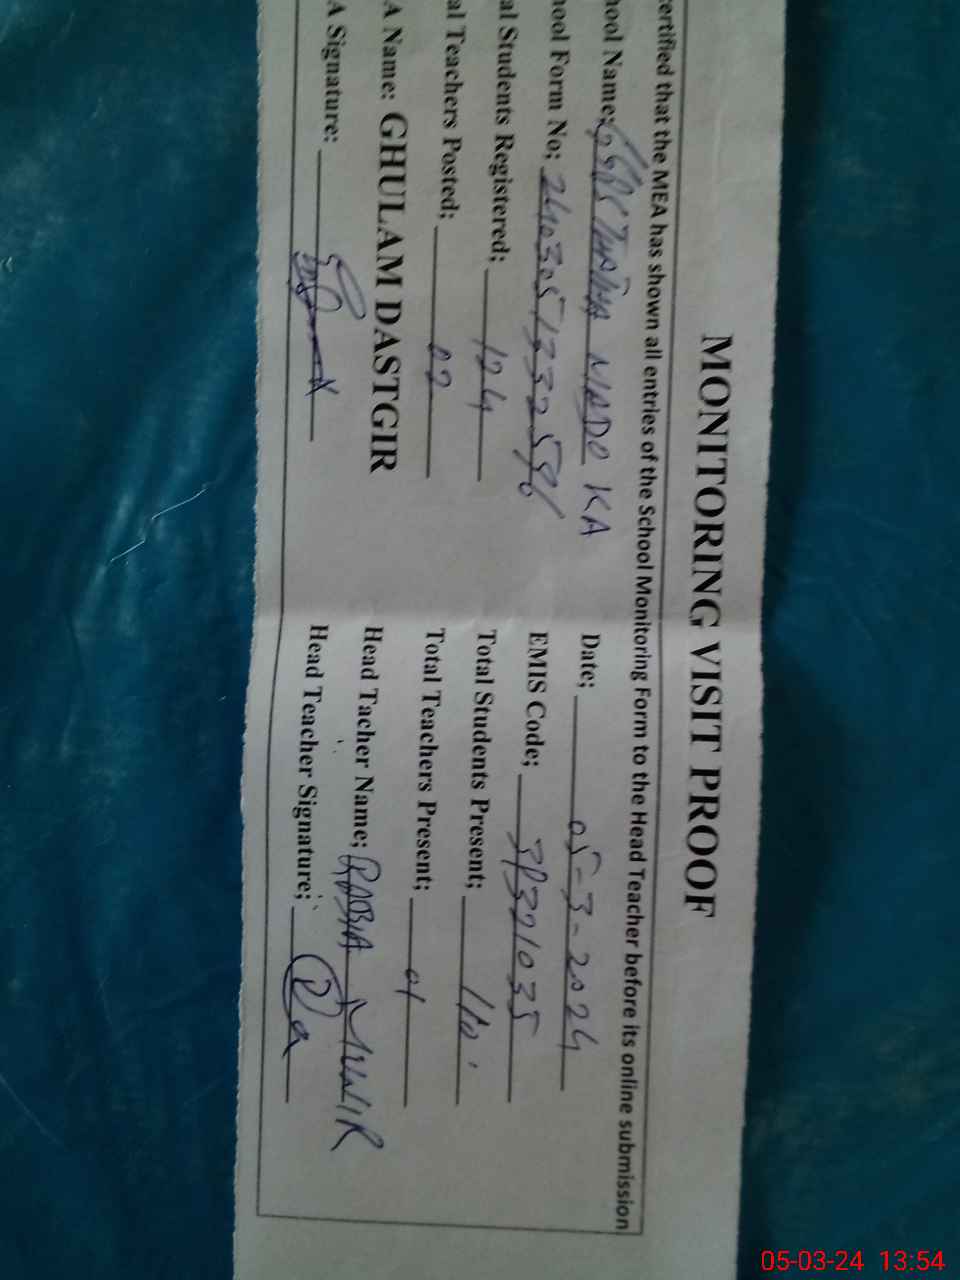 MONITORING VISIT PROOF
certified that the MEA has shown all entries of the School Monitoring Form to the Head Teacher before its online submission
hool Name: KA Date; 05-3-2024
hool Form No; EMIS Code;
al Students Registered; 124 Total Students Present; 110
al Teachers Posted; 02 Total Teachers Present; 01
A Name: GHULAM DASTGIR Head Tacher Name; RABIA MUNIR
A Signature: Head Teacher Signature;
05-03-24 13:54